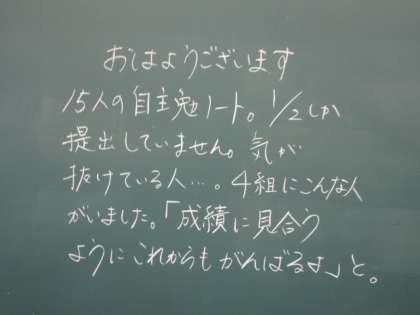 おはようございます
15人の自主勉ノート。1/2しか
提出していません。気が
抜けている人…。4組にこんな人
がいました。「成績に見合う
ようにこれからもがんばるよ」と。